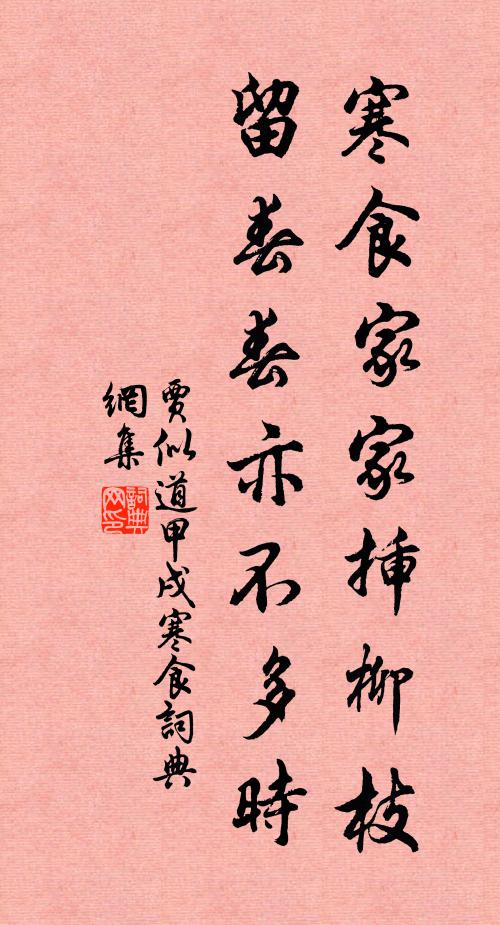 寒食家家插柳枝
留春春亦不多時
賈似道甲戌寒食詞典
網集
詞典
网印